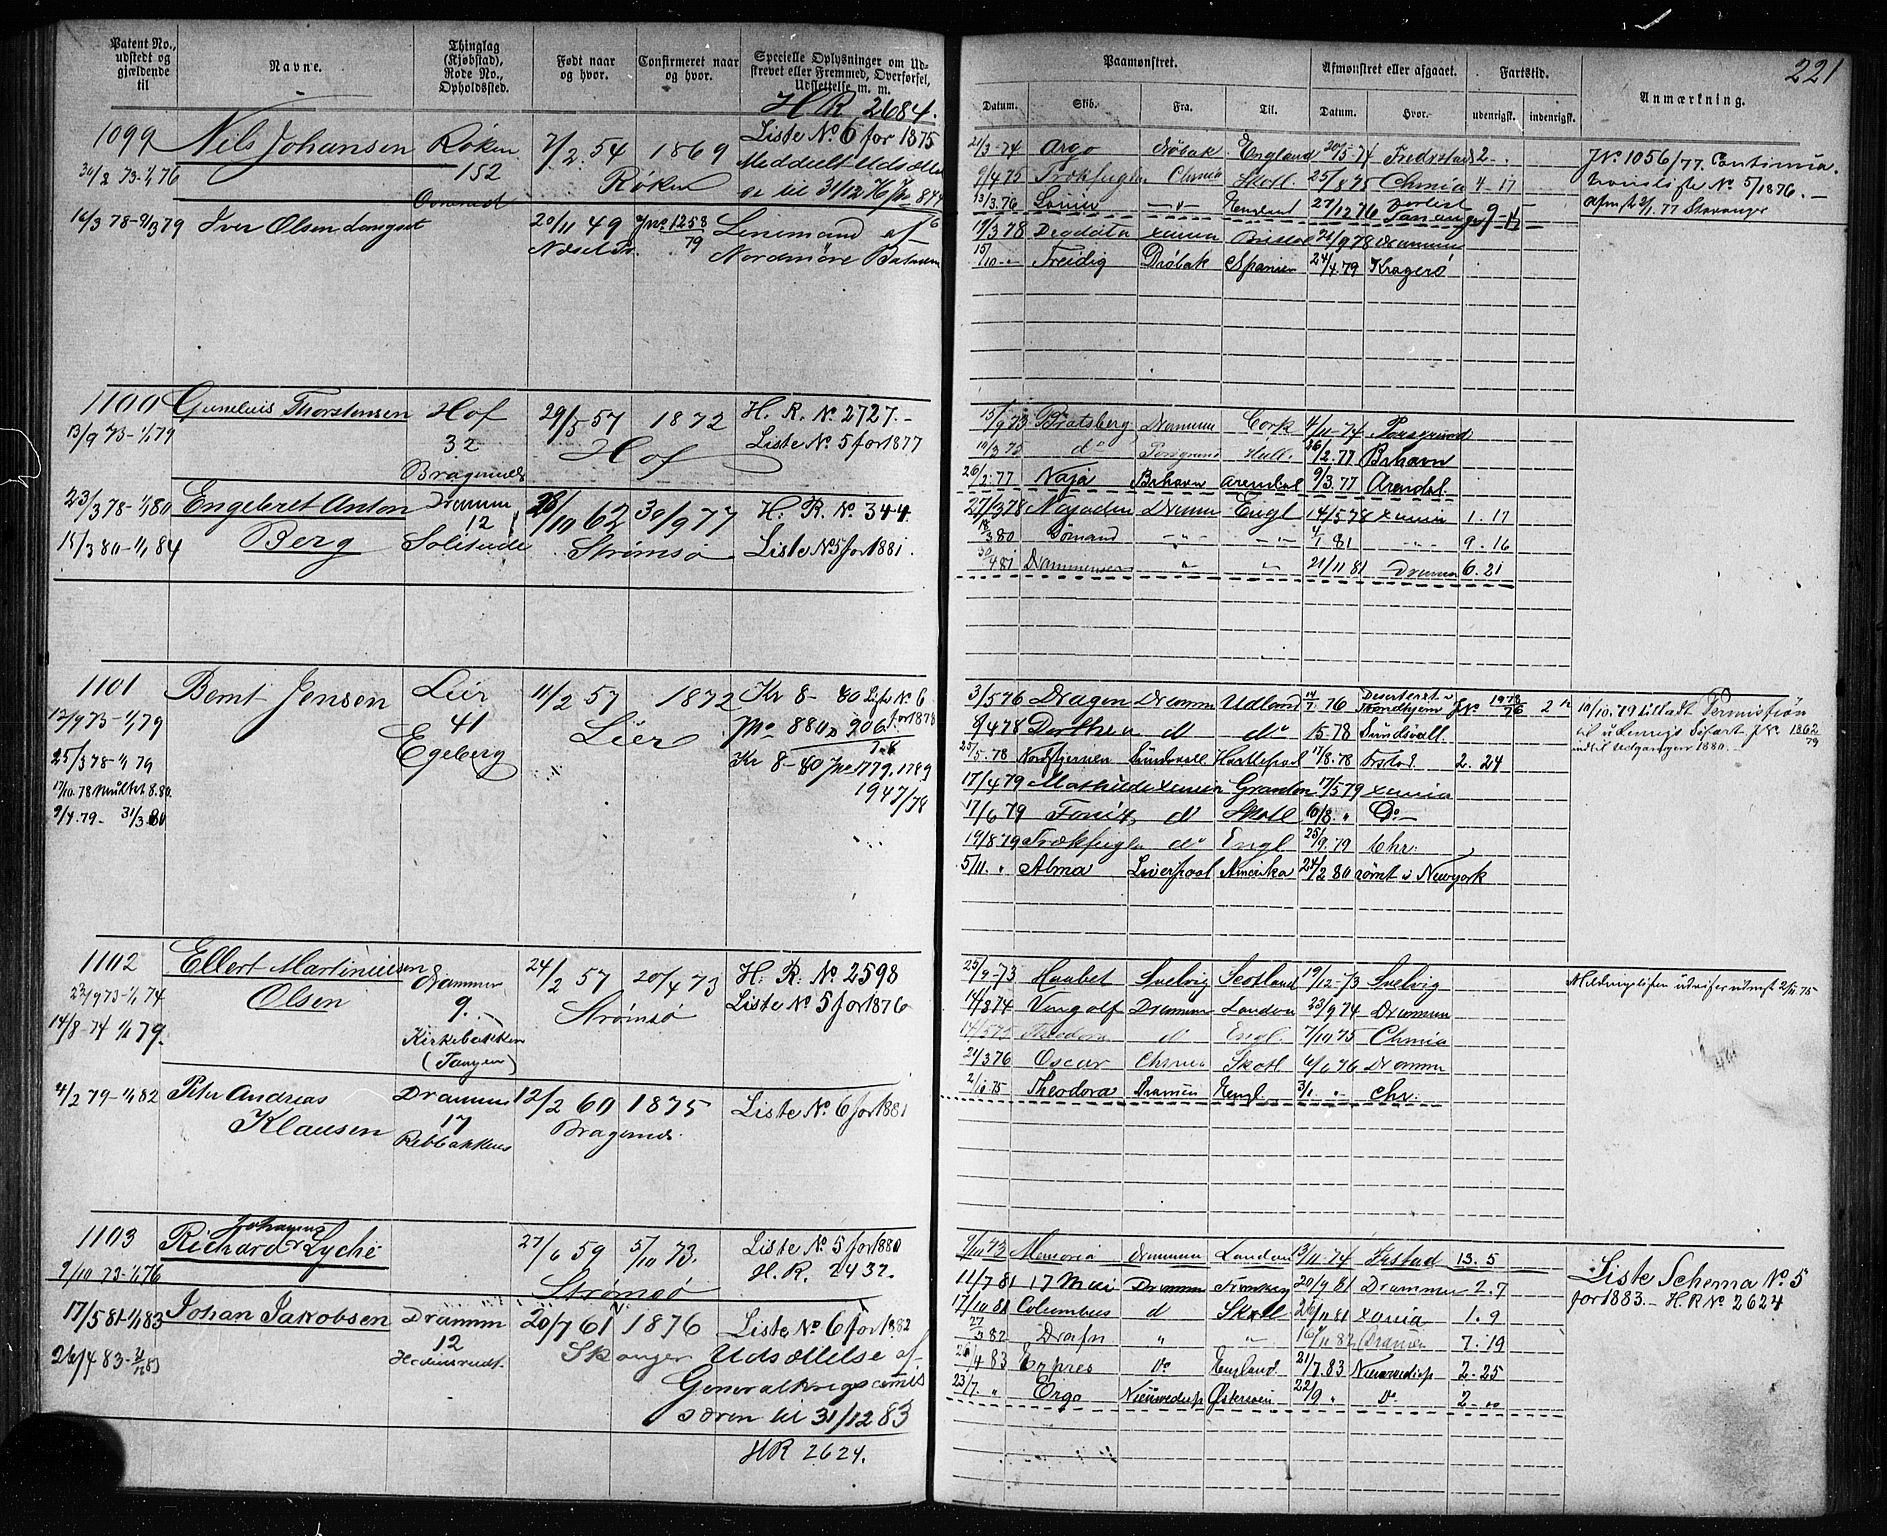 221
Patent No., udstedt og gjældende til
Navne.
Thinglag (Kjøbstad), Rode No., Opholdssted.
Født naar og hvor.
Confirmeret naar og hvor.
Specielle Oplysninger om Udstrevet eller Fremmed, Overførsel, Udslettelse m. m.
Paamønstret.
Afmønstret eller afgaaet.
Fartstid.
Anmærkning.
Datum. Skib. Fra. Til. Datum. Hvor. udenrigsk. indenrigsk.
H R 2684.
1099 Nils Johansen Røken 7/2 54 1869 Liste No 6 for 1875
152 Røken
16/3 78-9/1 79 Iver Olsen 20/11 49 Jno 1258/79 Linemand af
Nordmøre
21/3-74 Argo Drøbak England 20/5-74 Fredrstad 2 -
9/4 75 Trækfuglen Chnia Skotl. 25/8 75 Chnia 4-17
13/3.76 England 27/12 76
17/3 78 Deodata xania Bristol 21/9 78 Drammen
15/10 - Freidig Drøbak Spanien 24/4.79 Kragerø
JNo 1056/77. Continua.
No 5/1876.
2/1.77 Stavanger
1100 Gunelius Thorstensen Hof 29/5 57 1872 H. R. No 2727.-
13/9 73-1/1 79 32 Hof Liste No 5 for 1877
Bragernæs
23/3 78-1/1 80 Engebret Anton Drammen 28/10 62 30/9 77 H. R. No 344.
15/3 80-1/1 84 Berg 12 Solitude Strømsø Liste No 5 for 1881.
15/9 73 Bratsberg Drammen Cork 4/11-74 Porsgrund
10/3 75 do Porsgrund Hull. 26/2.77 Brhavn
26/2.77 Naja Brhavn Arendal 9/3.77 Arendal.
27/3 78 Najaden Dramn Engl 14/5 78 xania 1.17
18/3 80 Sømand -"- -"- 4/1 81 -"- 9.16
30/4 81 Drammensen " " 21/11 81 Drammen 6.21
1101 Bernt Jensen Lier 11/2 57 1872 Kr 8-80 Liste No 6
12/9 73-1/1 79 41 Lier for 1878
25/3 78-1/1 79 Egeberg Kr 8-80 Jno 1779. 1789
17/10.78 Multet 8.80 1947/78
9/4.79 - 31/3.80
3/5 76 Dragen Dramm Udland 14/7 76 Deserteret i Trondhjem JNo 1978/76 2
8/4 78 Dorthea d do 15.78 Sundsvall.
25/5.78 Nordstjernen Sundsvall Hartlepool 17/8.78 2.24
17/4 79 Mathilde xania Granton 17/5 79 xania
17/6 79 Fønix do Skotl 6/8. " Do -
19/8 79 Trækfuglen do Engl 25/9.79 Chr.
5/11. " Alma Liverpool Amerika 24/2 80 rømt i Newyork
10/10.79 tilladt Permission
JNo. 1362/79
indtil Udgangen 1880.-
1102 Ellert Martiniusen Drammen 24/2 57 20/4 73 H. R. No 2598
23/9 73-1/1 74 Olsen 9. Strømsø Liste No 5 for 1876
14/8-74 1/1 79. Kirkebakken
(Tangen)
4/2 79-1/1 82 Peter Andreas Drammen 12/2 60 1875 Liste No 6 for 1881
Klausen 17 Bragernæs.
Rebbakken
25/9-73 Haabet Svelvig Scotland 19/12-73 Svelvig
14/8 74 Vingolf Drammen London 23/9 74 Drammen
14/5 75 Theodora d Engl. 7/10 75 Chnia
24/3 76 Oscar Chnia Skotl 6/6 76 Drammen
2/10.75 Theodora Drammen Engl. 3/1 " Chr.
2/11 75
1103 Richard Johannes Lyche 27/6 59 5/10 73. Liste No 5 for 1880
9/10 73-1/1 76 Strømsø H. R. 2437.
17/5 81-1/1 83 Johan Jakobsen Drammen 20/7 61 1876 Liste No 6 for 1882
26/4 83-31/12 83 12 Skoger Udsættelse af
Generalkrigscomis
særen til 31/12 83
HR 2624.
9/10 73 Memoria Drammen London 13/11-74 Ystad 13.5
11/7 81 17 Mai Dramm Frankrig 20/9 81 Drammen 2.7
17/10 81 Columbus d Skotl 26/11 81 xania 1.9
27/3 82 Drafn " " 16/11 82 Dramm 7.19
26/4 83 Expres Do England 21/7.83 Nieuwediep 2.25
23/7. " Argo Nieuwediep Østersøen 22/9 " Do 2-"
Liste Schema No 5
for 1883.- H. R No 2624